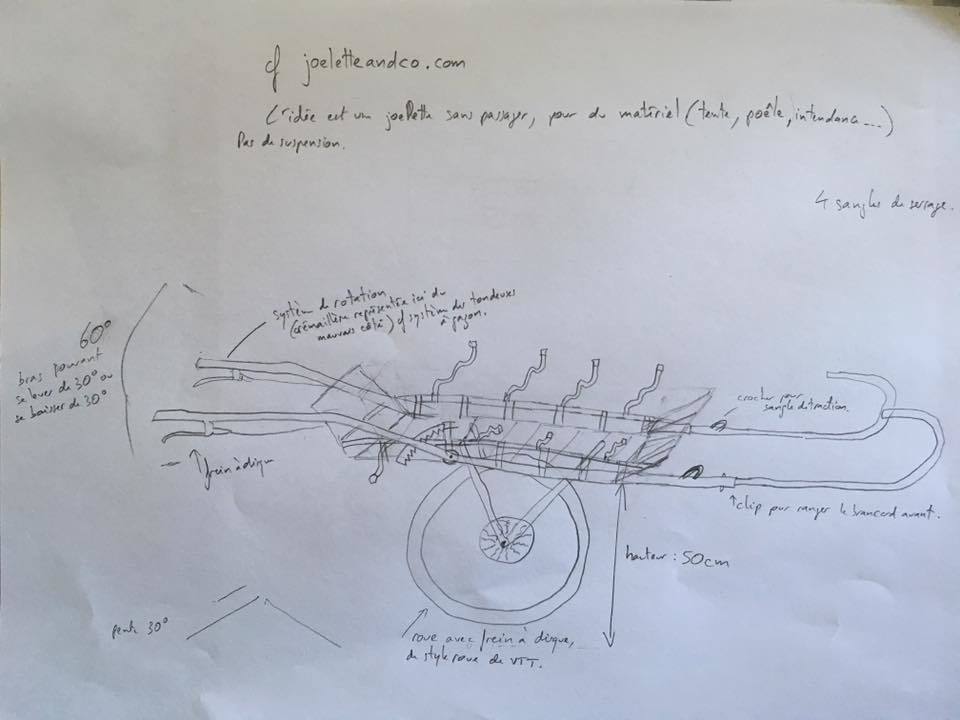 cf joeletteandco.com
L'idée est une joelette sans passager, pour du matériel (tente, poêle, intendance ...)
Pas de suspension.
4 sangles de serrage.
système de rotation
(crémaillère représentée ici du
mauvais côté) cf système des tondeuses
à gazon.
60°
bras pouvant
se lever de 30° ou
se baisser de 30°
crochet pour
sangle de traction.
frein à disque
clip pour ranger le brancard avant.
hauteur : 50cm
pente 30°
roue avec frein à disque,
de style roue de VTT.